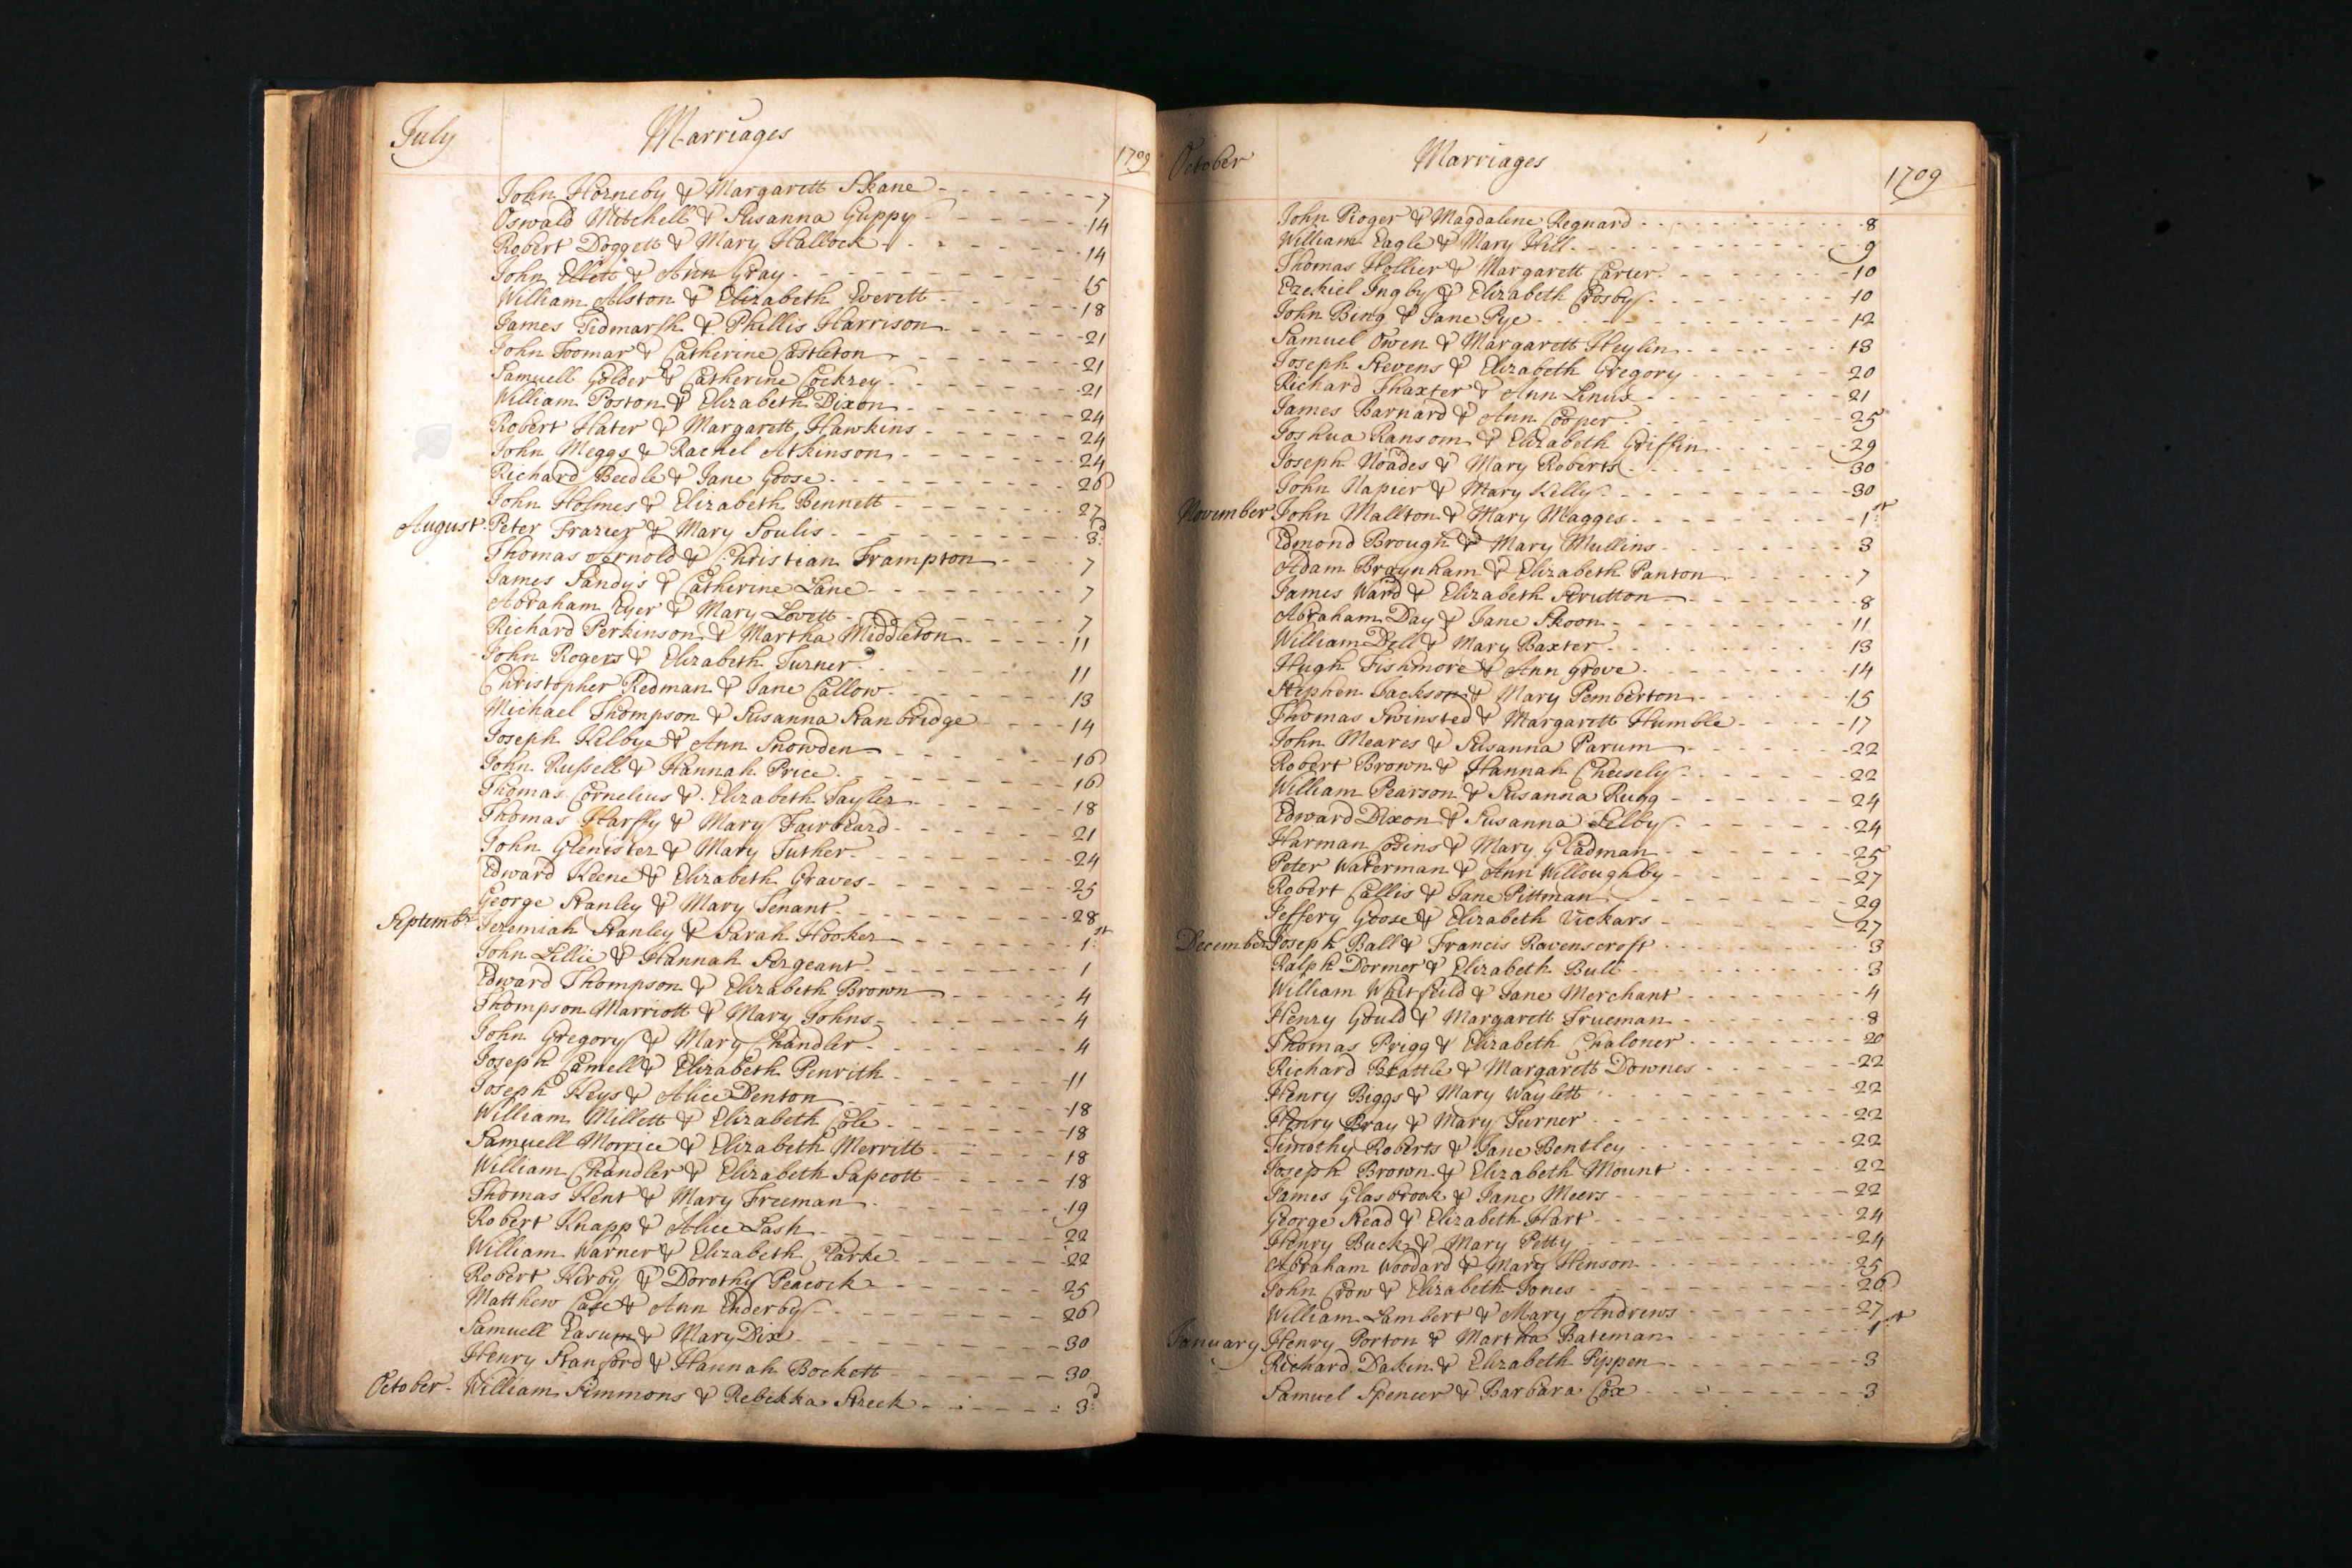 July Marriages 1709
John Horneby & Margarett Skane 7
Oswald Mitchell & Susanna Guppy 14
Robert Doggett & Mary Hallock 14
John Ellett & Ann Gray 15
William Alston & Elizabeth Everett 18
James Tidmarsh & Phillis Harrison 21
John Toomar & Catherine Castleton 21
Samuell Golder & Catherine Cockrey 21
William Poston & Elizabeth Dixon 24
Robert Hater & Margarett Hawkins 24
John Meggs & Rachel Atkinson 24
Richard Beedle & Jane Goose 26
John Holmes & Elizabeth Bennett 27
August Peter Frazier & Mary Soulis 3d
Thomas Arnold & Christian Frampton 7
James Sandys & Catherine Lane 7
Abraham Eyer & Mary Lovett 7
Richard Perkinson & Martha Middleton 11
John Rogers & Elizabeth Turner 11
Christopher Redman & Jane Callow 13
Michael Thompson & Susanna Stanbridge 14
Joseph Kilbye & Ann Snowden 16
John Russell & Hannah Price 16
Thomas Cornelius & Elizabeth Tayler 18
Thomas Harffy & Mary Fairbeard 21
John Glenister & Mary Tuther 24
Edward Keene & Elizabeth Graves 25
George Stanley & Mary Tenant 28
Septembr Jeremiah Stanley & Sarah Hooker 1st
John Lillie & Hannah Sergeant 1
Edward Thompson & Elizabeth Brown 4
Thompson Marriott & Mary Johns 4
John Gregory & Mary Chandler 4
Joseph Camell & Elizabeth Penrith 11
Joseph Keys & Alice Denton 18
William Millett & Elizabeth Cole 18
Samuell Morrice & Elizabeth Merritt 18
William Chandler & Elizabeth Sapcott 18
Thomas Kent & Mary Freeman 19
Robert Knapp & Alice Lash 22
William Warner & Elizabeth Clarke 22
Robert Kirby & Dorothy Peacock 25
Matthew Case & Ann Enderby 26
Samuell Easum & Mary Dix 30
Henry Stanford & Hannah Bockett 30
October William Simmons & Rebekka Streek 3d
October Marriages 1709
John Roger & Magdalene Regnard 8
William Eagle & Mary Hill 9
Thomas Hollier & Margarett Carter 10
Ezekiel Ingby & Elizabeth Crosby 10
John Bing & Jane Pye 12
Samuel Owen & Margarett Heylin 13
Joseph Stevens & Elizabeth Gregory 20
Richard Thaxter & Ann Linus 21
James Barnard & Ann Cooper 25
Joshua Ransom & Elizabeth Griffin 29
Joseph Noades & Mary Roberts 30
John Napier & Mary Kelly 30
November John Mallton & Mary Magges 1st
Edmond Brough & Mary Mullins 3
Adam Braynham & Elizabeth Panton 7
James Ward & Elizabeth Strutton 8
Abraham Day & Jane Skoon 11
William Dell & Mary Baxter 13
Hugh Fishmore & Ann Grove 14
Stephen Jackson & Mary Pemberton 15
Thomas Swinsted & Margarett Humble 17
John Meares & Susanna Parum 22
Robert Brown & Hannah Cheesely 22
William Pearson & Susanna Rugg 24
Edward Dixon & Susanna Selby 24
Harman Codins & Mary Gladman 25
Peter Waterman & Ann Willoughby 27
Robert Callis & Jane Pittman 29
Jeffery Goose & Elizabeth Vickars 27
December Joseph Ball & Francis Ravenscroft 3
Ralph Dormer & Elizabeth Bull 3
William Whitfeild & Jane Merchant 4
Henry Gould & Margarett Trueman 8
Thomas Prigg & Elizabeth Chaloner 20
Richard Brattle & Margarett Downes 22
Henry Biggs & Mary Waylett 22
Henry Bray & Mary Turner 22
Timothy Roberts & Jane Bentley 22
Joseph Brown & Elizabeth Mount 22
James Glasbrook & Jane Meers 22
George Stead & Elizabeth Hart 24
Henry Buck & Mary Petty 24
Abraham Woodard & Mary Henson 25
John Crow & Elizabeth Jones 26
William Lambert & Mary Andrews 27
January Henry Porton & Martha Bateman 1st
Richard Dakin & Elizabeth Pippen 3
Samuel Spencer & Barbara Cox 3